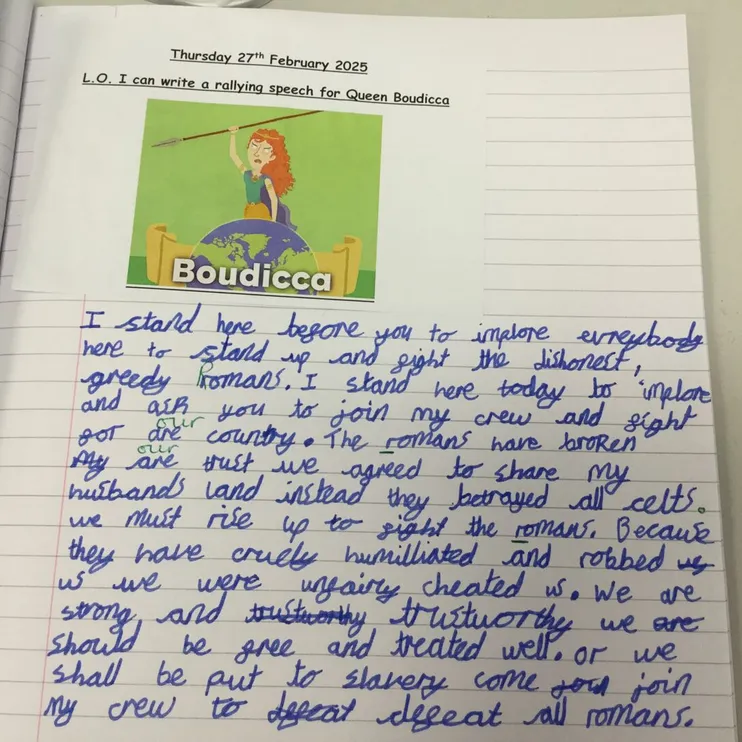 Thursday 27th February 2025
L.O. I can write a rallying speech for Queen Boudicca
Boudicca
I stand here before you to implore evreybody
here to stand up and fight the dishonest,
greedy Romans. I stand here today to implore
and ask you to join my crew and fight
our
for are country. The romans have broken
our
my are trust we agreed to share my
husbands land instead they betrayed all celts.
we must rise up to fight the romans. Because
they have cruely humilliated and robbed us
us we were unfairly cheated us. We are
strong and trustworthy trustworthy we are
should be free and treated well. or we
shall be put to slavery come join join
my crew to defeat defeat all romans.